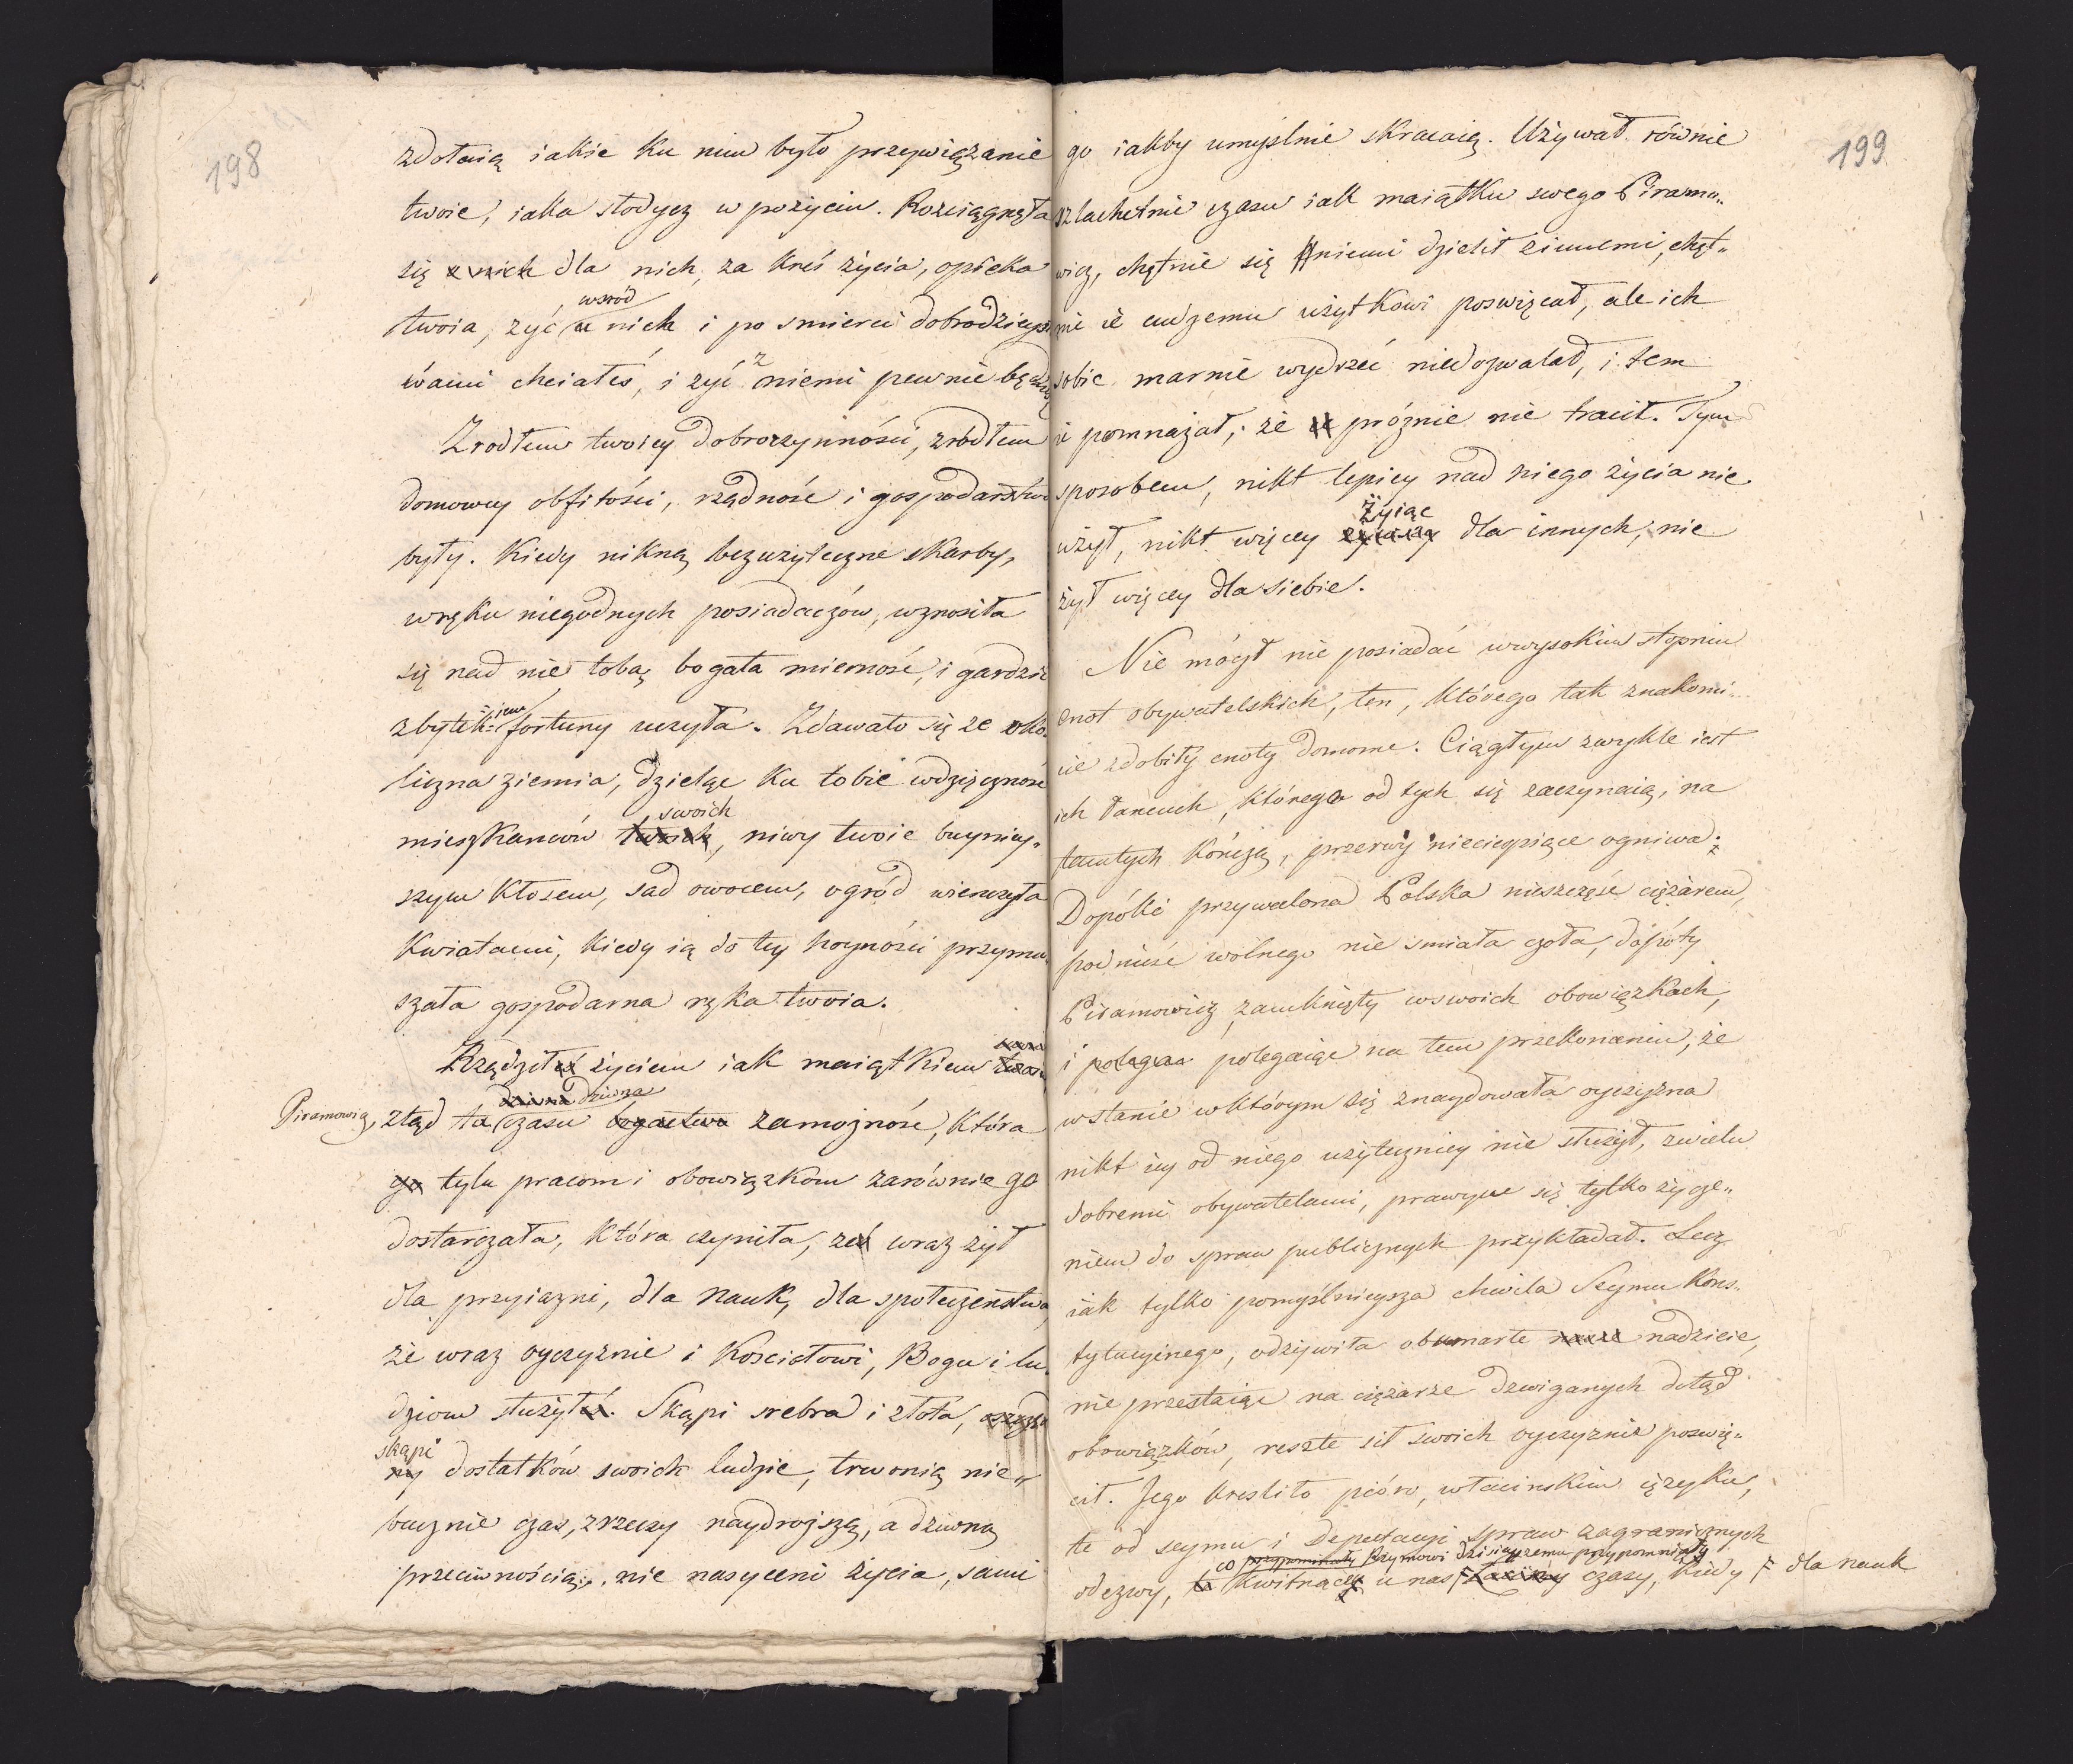 198
zdołaią iakie ku nim było przywiązanie
twoie, iaka słodycz w pożyciu. Rozciągnęła
się z nich dla nich, za kres życia, opieka
wsród
twoia, żyć u nich i po smierci dobrodzieys
twami chciałeś, i żyć z niemi pewnie będziesz
Zrodłem twoiey dobroczynności, zrodłem
domowey obfitości, rządność i gospodarstwo
były. Kiedy nikną bezużyteczne skarby,
wręku niegodnych posiadaczów, wznosiła
się nad nie tobą bogata mierność, i gardzić
zbytkiem fortuny uczyła. Zdawało się że oko-
liczna ziemia, dzieląc ku tobie wdzięczność
swoich
mieszkańców twoich, niwy twoie buyniey„
szym kłosem, sad owocem, ogród wieńczyła
kwiatami, kiedy ią do tey hoyności przymu„
szała gospodarna ręka twoia.
Rządziłeś życiem iak maiątkiem
dziwna dziwna
Piramowicz, ztąd ta czasu bogactwa zamożność, która
go tylu pracom i obowiązkom zarównie go
dostarczała, która czyniła, żeś wraz żył
dla przyiazni, dla nauk, dla społeczeństwa,
że wraz oyczyznie i Kościołowi, Bogu i lu
dziom służyłeś. Skąpi srebra i złota,
skąpi
ny dostatków swoich ludzie, trwonią nie„
bacznie czas, z rzeczy naydroższą, a dziwną
przeciwnością, nie nasyceni życia, sami
199
go iakby umyślnie skracaią. Używał równie
szlachetnie czasu iak maiątku swego Piramo„
wicz, chętnie się niemi dzielił z innemi, chęt„
nie ie cudzemu użytkowi poswięcał, ale ich
sobie marnie wydrzeć niedozwalał, i tem
ie pomnażał, że ie próżnie nie tracił. Tym
sposobem, nikt lepiey nad niego życia nie
Żyiąc
użył, nikt więcey żyiący dla innych, nie
żył więcey dla siebie.
Nie mógł nie posiadać wwysokim stopniu
cnot obywatelskich, ten, którego tak znakomi
cie zdobiły cnoty domowe. Ciągłym zwykle iest
ich łancuch, którego od tych się zaczynaią, na
tamtych kończą, przerwy niecierpiące ogniwa.
Dopóki przywalona Polska nieszczęść ciężarem,
podnieść wolnego nie smiała czoła, dopóty
Piramowicz zamknięty wswoich obowiązkach,
i polegaa polegaiąc na tem przekonaniu, że
wstanie wktórym się znaydowała oyczyzna
nikt iey od niego użyteczniey nie służył, zwielu
dobremi obywatelami, prawym się tylko życze„
niem do spraw publicznych przykładał. Lecz
iak tylko pomyślnieysza chwila Seymu Kons„
tytucyinego, odżywiła obumarłe nasze nadzieie,
nie przestaiąc na ciężarze dzwiganych dotąd
obowiązków, reszte sił swoich oyczyznie poswię„
cił. Jego kresliło pióro, włacinskim ięzyku,
te od seymu i Deputacyi spraw zagranicznych
co przypominały Rzymowi dzisieyszemu przypomniały
odezwy, te kwitnące u nas łaciny czasy, kiedy F dla nauk